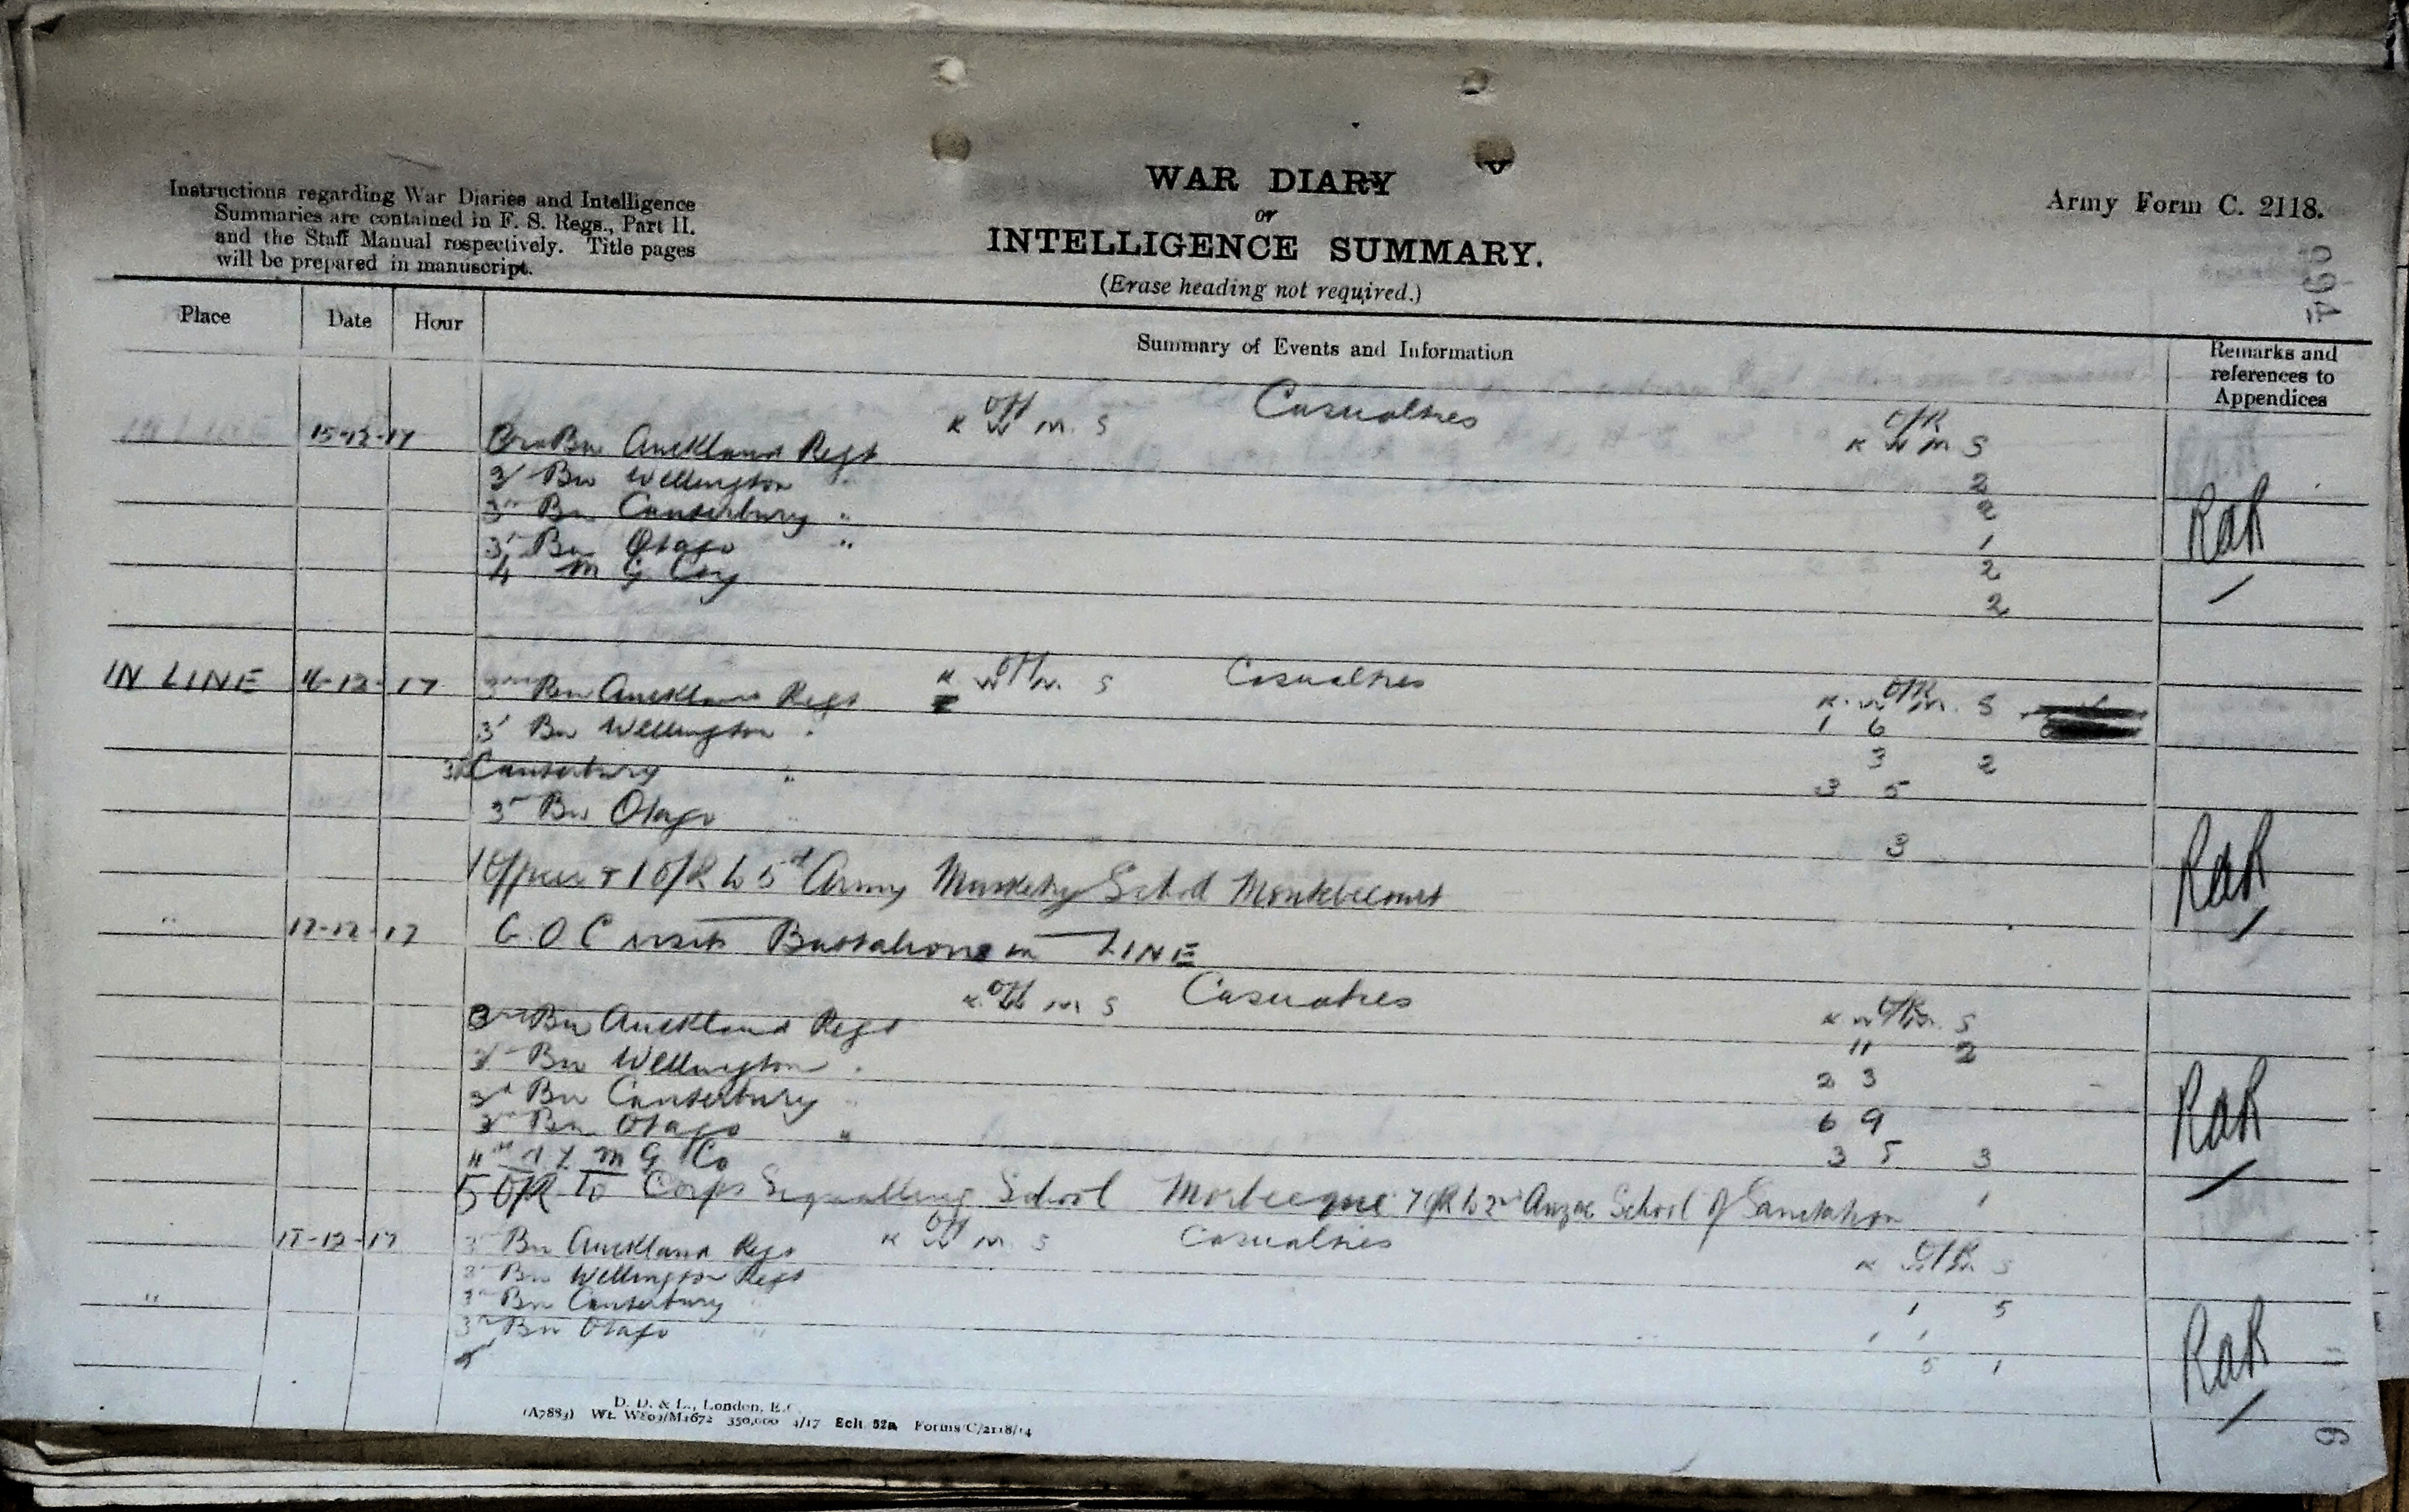 Instructions regarding War Diaries and Intelligence
Summaries are contained in F. S. Regs., Part II.
and the Staff Manual respectively. Title pages
will be prepared in manuscript.
WAR DIARY
or
INTELLIGENCE SUMMARY.
(Erase heading not required.)
Army Form C. 2118.
Place Date Hour Summary of Events and Information Remarks and references to Appendices
Off Casualties O/R
K W M S K W M S
IN LINE 15-12-17 3rd Bn Auckland Regt 2
3rd Bn Wellington " 2
3rd Bn Canterbury " 1
3rd Bn Otago " 2
4 M G Coy 2
RaR
Off Casualties O/R
K W M S K W M S
IN LINE 16-12-17 3rd Bn Auckland Regt 1 6
3rd Bn Wellington " 3 2
3rd Canterbury " 3 5
3rd Bn Otago " 3
1 Officer + 1 O/R to 5th Army Musketry School
RaR
" 17-12-17 G.O.C visits Battalions in LINE
Off Casualties O/R
K W M S K W M S
3rd Bn Auckland Regt 11 2
3rd Bn Wellington " 2 3
3rd Bn Canterbury " 6 9
3rd Bn Otago " 3 5 3
M G Co 1
RaR
5 O/R to Corps Signalling School Morbecque 7 O/R to 2nd Anzac School of Sanitation
Off Casualties O/R
K W M S K W M S
-12-17 3rd Bn Auckland Regt
3rd Bn Wellington Regt 1 5
" 3rd Bn Canterbury " 1 1
3rd Bn Otago " 5 1
RaR
D. D. & L., London, E.C.
(A7883) Wt. W809/M1672 350,000 4/17 Sch. 52a Forms/C/2118/14